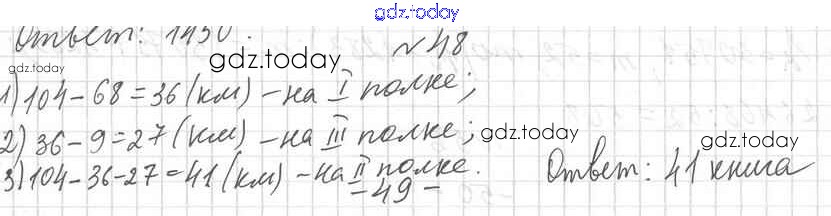 gdz.today
Ответ: 1450. №48
gdz.today gdz.today
1) 104-68=36 (км) - на I полке;
2) 36-9=27 (км) - на III полке; gdz.today gdz.today
3) 104-36-27=41 (км) - на II полке. Ответ: 41 книга
-49-